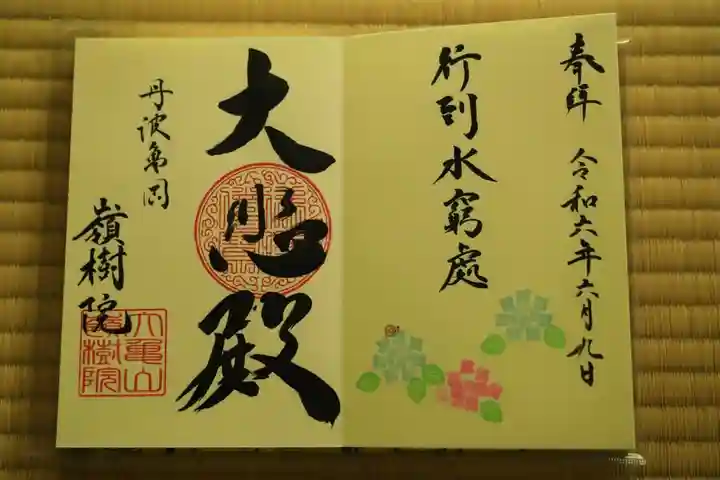 奉拝 令和六年六月九日
行到水窮處
大悲殿
丹波亀岡
嶺樹院
大亀山
嶺樹院